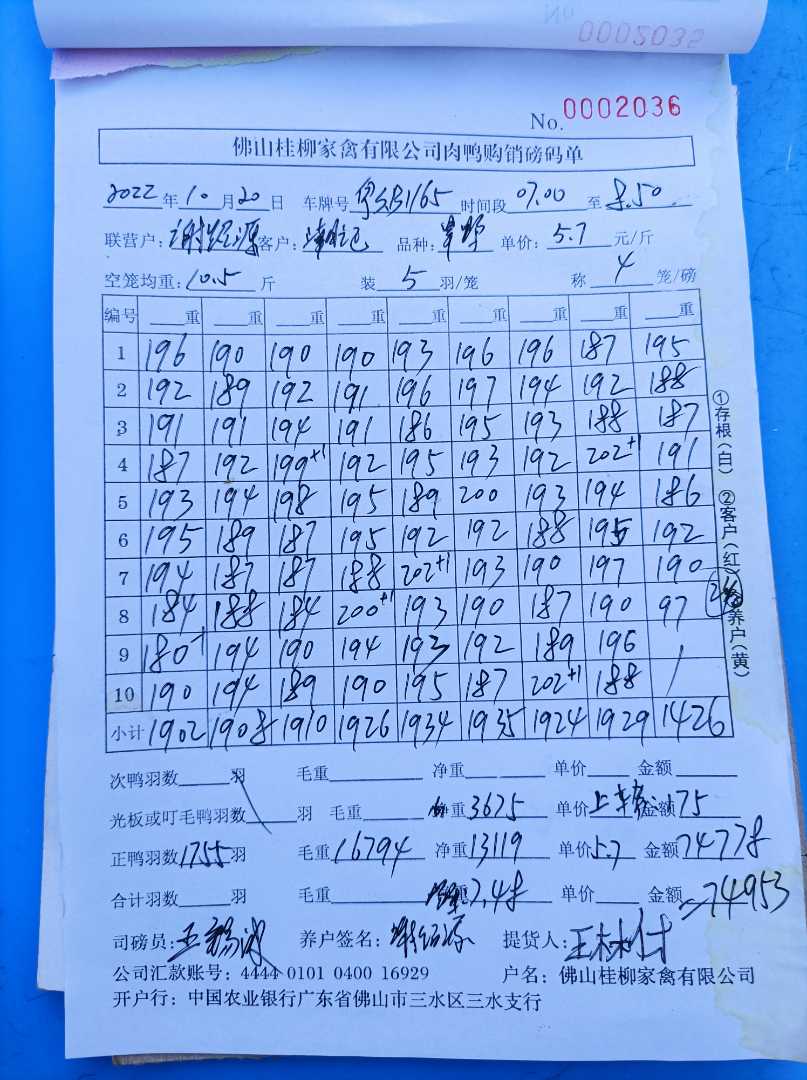 0002035
No. 0002036
佛山桂柳家禽有限公司肉鸭购销磅码单
2022年10月20日 车牌号 时间段07.00至8.50
联营户: 客户: 品种: 单价:5.7元/斤
空笼均重:10.5斤 装5羽/笼 称4笼/磅
编号 重 重 重 重 重 重 重 重 重
1 196 190 190 190 193 196 196 187 195
2 192 189 192 191 196 197 194 192 188
3 191 191 194 191 186 195 193 188 187
4 187 192 199+1 192 195 193 192 202+1 191
5 193 194 198 195 189 200 193 194 186
6 195 189 187 195 192 192 188 195 192
7 194 187 187 188 202+1 193 190 197 190
8 184 188 184 200+1 193 190 187 190 97
9 180 194 190 194 193 192 189 196
10 190 194 189 190 195 187 202+1 188
小计 1902 1908 1910 1926 1934 1935 1924 1929 1426
①存根(白) ②客户(红) 养户(黄)
次鸭羽数 羽 毛重 净重 单价 金额
光板或叮毛鸭羽数 羽 毛重 重3675 单价上车 金额175
正鸭羽数1755羽 毛重16794 净重13119 单价5.7 金额74778
合计羽数 羽 毛重 重7.48 单价 金额=74953
司磅员: 养户签名: 提货人:
公司汇款账号: 4444 0101 0400 16929 户名: 佛山桂柳家禽有限公司
开户行: 中国农业银行广东省佛山市三水区三水支行